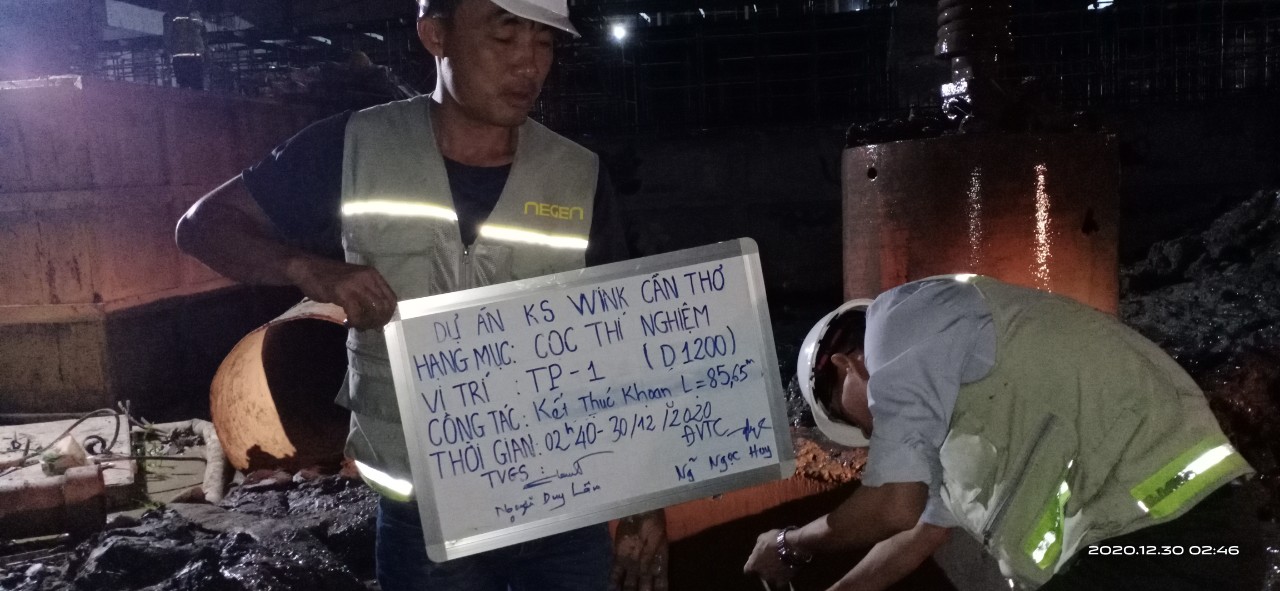 NEGEN
DỰ ÁN KS WINK CẦN THƠ
HẠNG MỤC: CỌC THÍ NGHIỆM
VỊ TRÍ : TP-1 (D1200)
CÔNG TÁC: Kết Thúc Khoan L=85,65m
THỜI GIAN: 02h40 - 30/12/2020
TVGS : ĐVTC
Duy Ng Ngọc Huy
2020.12.30 02:46